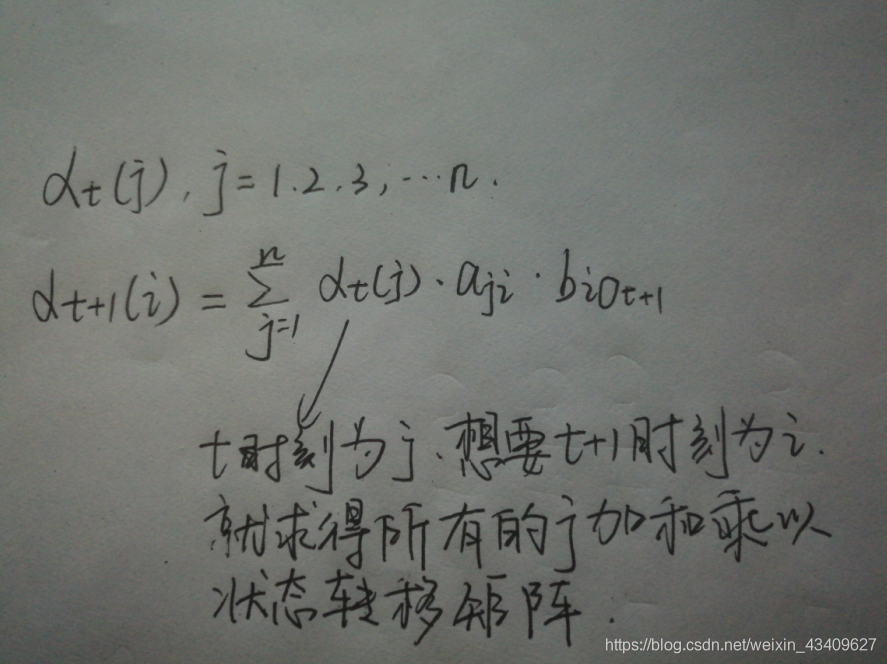 αt(j), j=1.2.3,…n.
αt+1(i) = Σ n j=1 αt(j)·aji·biOt+1
t时刻为j.想要t+1时刻为i.
就求得所有的j加和乘以
状态转移矩阵.
https://blog.csdn.net/weixin_43409627